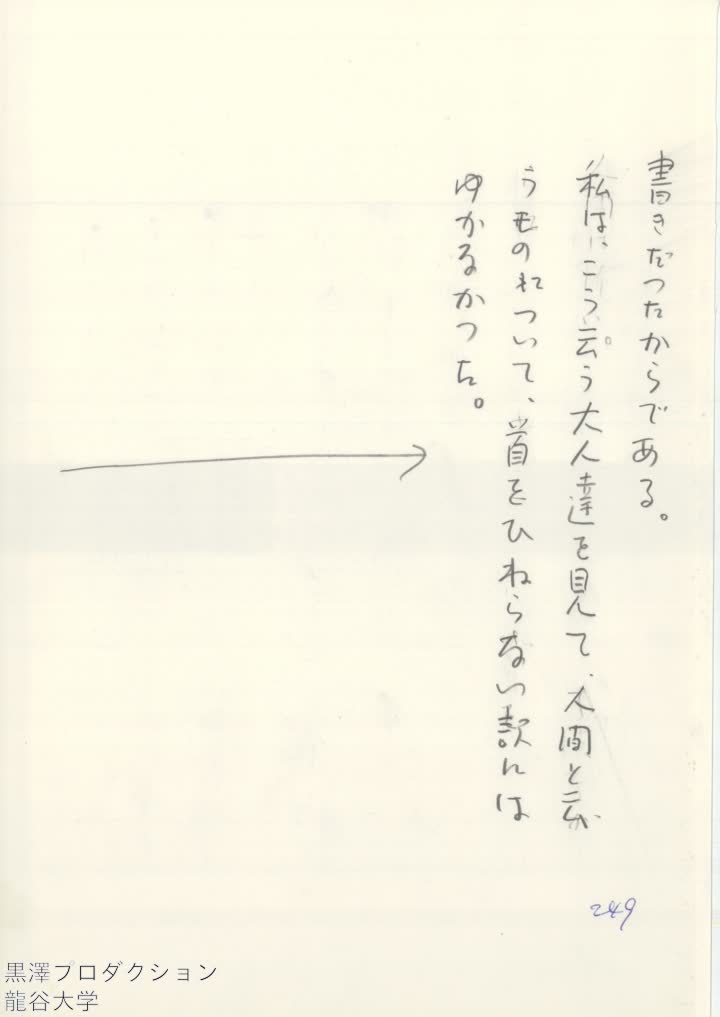 書きだつたからである。
私は、こう云う大人達を見て、人間と云
うものについて、首をひねらない訳には
ゆかなかつた。
249
黒澤プロダクション
龍谷大学